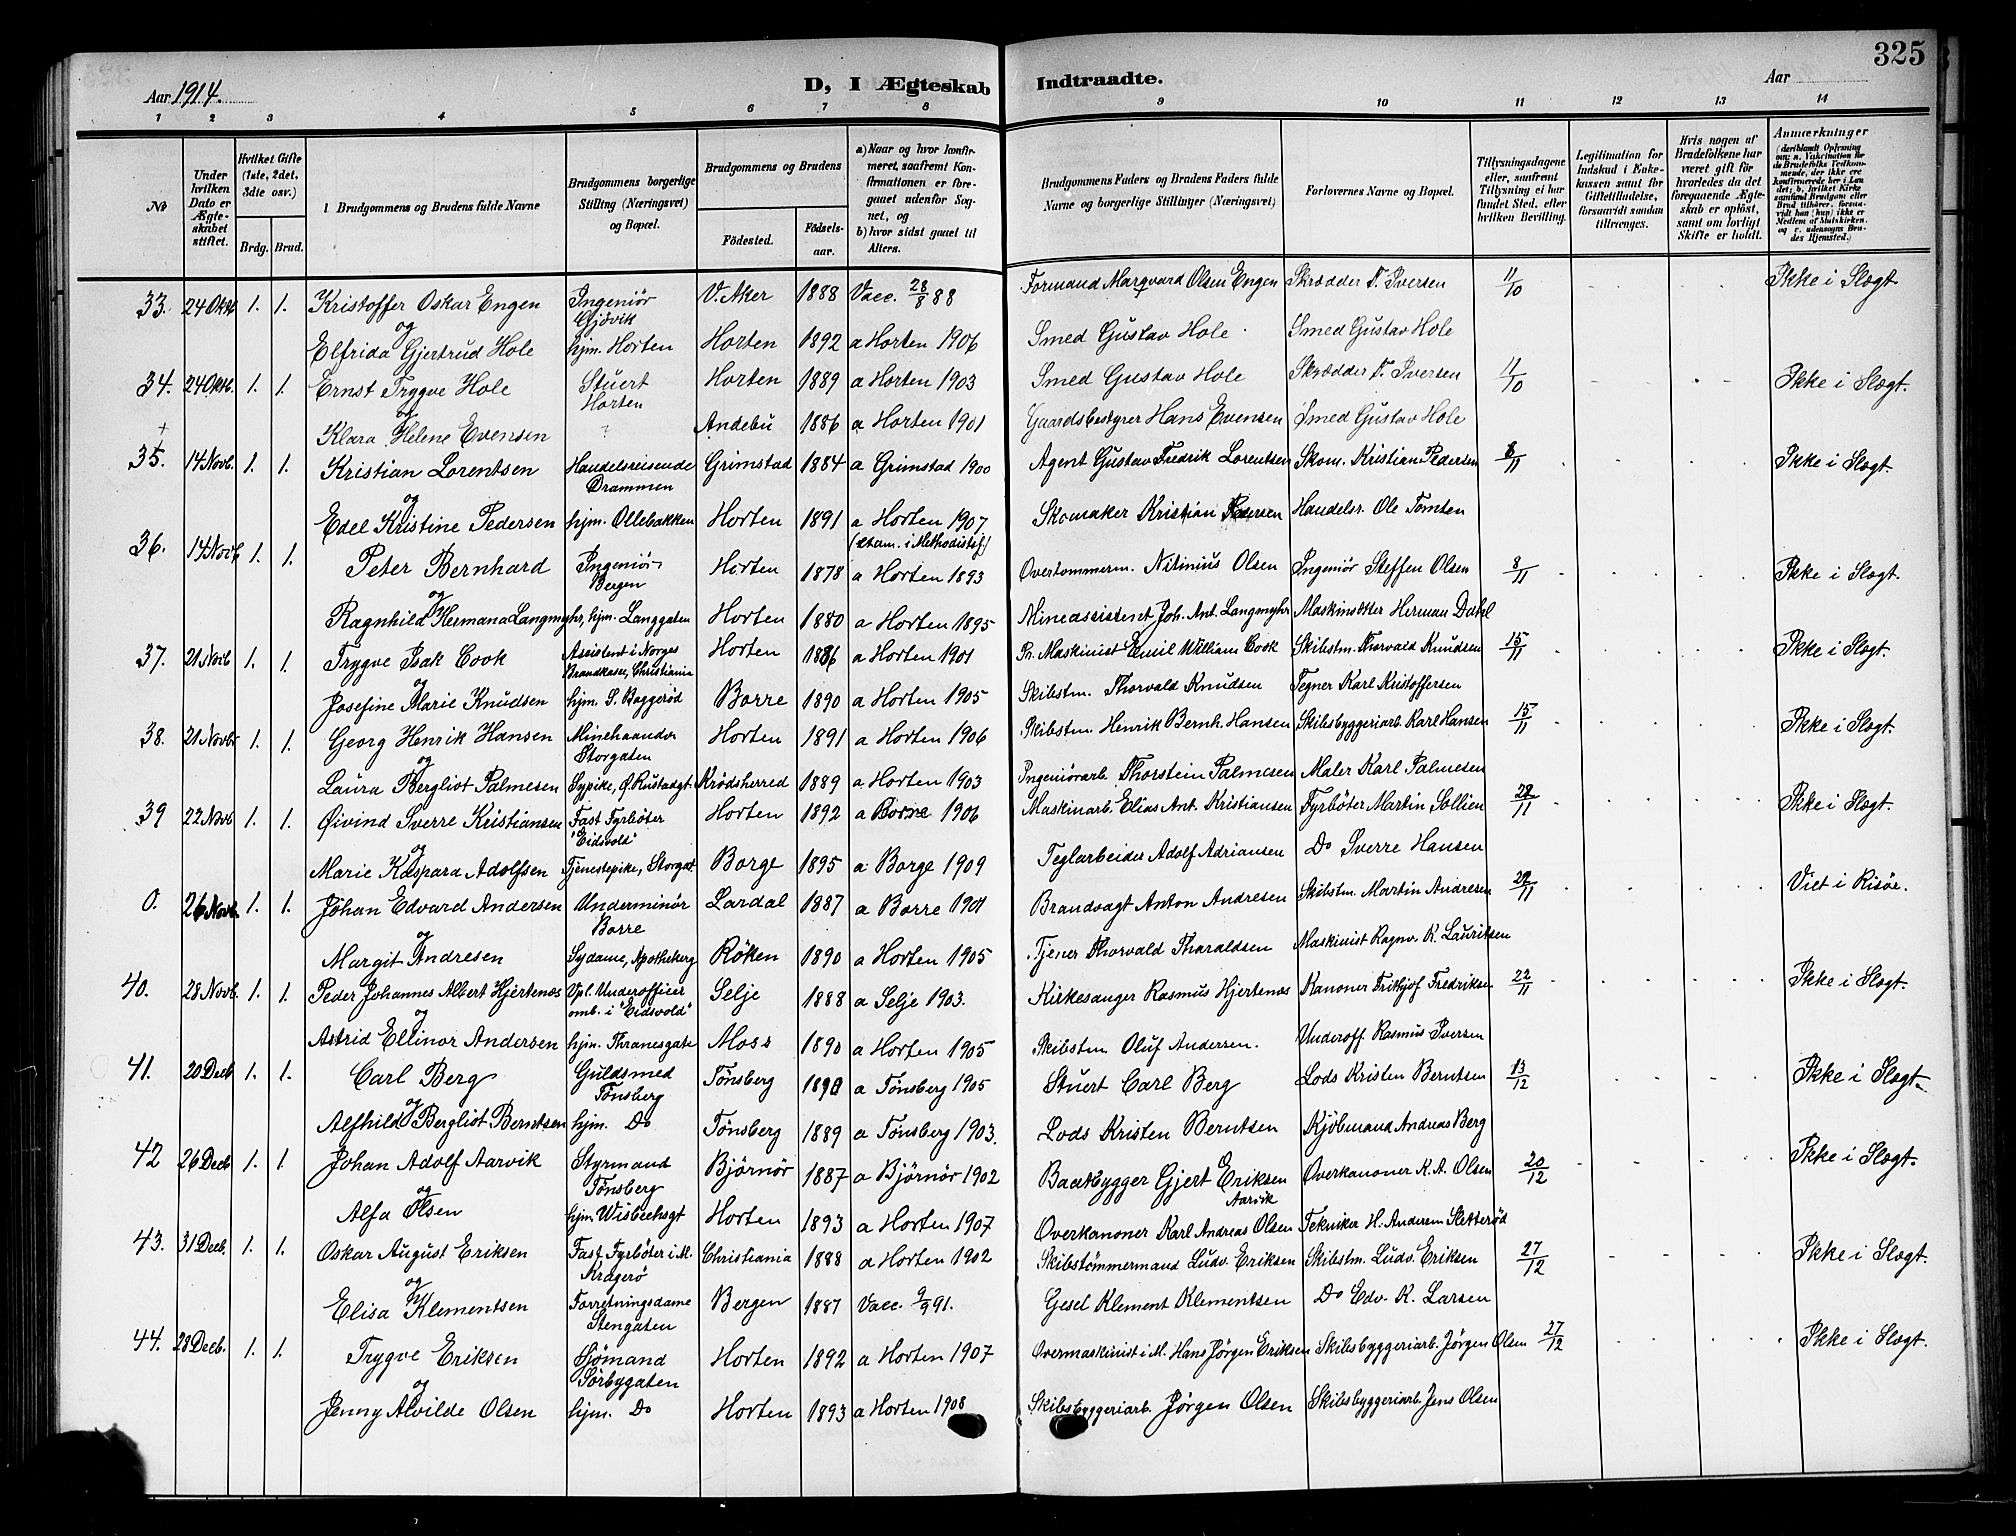 325
Aar 1914.
D, I Ægteskab Indtraadte.
Aar
1 2 3 4 5 6 7 8 9 10 11 12 13 14
No
Under hvilken Dato er Ægteskabet stiftet.
Hvilket Gifte (1ste, 2det, 3die osv.)
Brdg. Brud.
Brudgommens og Brudens fulde Navne
Brudgommens borgerlige Stilling (Næringsvei) og Bopæl.
Brudgommens og Brudens
Fødested. Fødselsaar.
a) Naar og hvor konfirmeret, saafremt Konfirmationen er foregaaet udenfor Sognet, og
b) hvor sidst gaaet til Alters.
Brudgommens Faders og Brudens Faders fulde Navne og borgerlige Stillinger (Næringsvei)
Forlovernes Navne og Bopæl.
Tillysningsdagene eller, saafremt Tillysning ei har fundet Sted, efter hvilken Bevilling.
Legitimation for Indskud i Enkekassen samt for Giftetilladelse, forsaavidt saadan tiltrænges.
Hvis nogen af Brudefolkene har været gift før hvorledes da det foregaaende Ægteskab er opløst, samt om lovligt Skifte er holdt.
Anmærkninger (deriblandt Oplysning om: a. Vakcination for de Brudefolks Vedkommende, der ikke ere konfirmerede her i Landet; b. hvilket Kirkesamfund Brudgom eller Brud tilhører, forsaavidt han (hun) ikke er Medlem af Statskirken, og c. udensogns Brudes Hjemsted.)
33. 24 Oktb. 1. 1. Kristoffer Oskar Engen Ingeniør Gjøvik V. Aker 1888 Vacc. 28/8 88 Formand Marqvard Olsen Engen Skrædder T. Iversen 11/10 Ikke i Slægt.
og
Elfrida Gjertrud Hole hjm. Horten Horten 1892 a Horten 1906 Smed Gustav Hole Smed Gustav Hole
34. 24 Oktb. 1. 1. Ernst Trygve Hole Stuert Horten Horten 1889 a Horten 1903 Smed Gustav Hole Skrædder T. Iversen 11/10 Ikke i Slægt.
og
Klara Helene Evensen ? Andebu 1886 a Horten 1901 Gaardsbestyrer Hans Evensen Smed Gustav Hole
35. 14 Novb. 1. 1. Kristian Lorentsen Handelsreisende Drammen Grimstad 1884 a Grimstad 1900 Agent Gustav Fredrik Lorentsen Skom. Kristian Pedersen 8/11 Ikke i Slægt.
og
Edel Kristine Pedersen hjm. Ollebakken Horten 1891 a Horten 1907 Skomaker Kristian Pedersen Handelsr. Ole Tomten
36. 14 Novb 1. 1. Peter Bernhard Ingeniør Bergen Horten 1878 a Horten 1893 Overtømmerm. Nitinius Olsen Ingeniør Steffen Olsen 8/11 Ikke i Slægt.
og
Ragnhild Hermana Langmyhr, hjm. Langgaten Horten 1880 a Horten 1895 Mineassistent Joh. Ant. Langmyhr Maskinsetter Herman Dahl
37. 21 Novb 1. 1. Trygve Isak Cook Assistent i Norges Brandkasse, Christiania Horten 1886 a Horten 1901 P. Maskinist Emil William Cook Skibstm. Thorvald Knudsen 15/11 Ikke i Slægt.
og
Josefine Marie Knudsen hjm. S. Baggerød Borre 1890 a Horten 1905 Skibstm. Thorvald Knudsen Tegner Karl Kristoffersen
38. 21 Novbr 1. 1. Georg Henrik Hansen Minehaandv Storgaten Horten 1891 a Horten 1906 Skibstm. Henrik Bernh. Hansen Skibsbyggeriarb. Karl Hansen 15/11 Ikke i Slægt.
og
Laura Bergliot Palmesen Sypike, Ø. Rustadgt. Krødsherred 1889 a Horten 1903 Ingeniørarb. Thorstein Palmesen Maler Karl Palmesen
39 22 Novb 1. 1. Øivind Sverre Kristiansen Fast Fyrbøter "Eidsvold" Horten 1892 a Borre 1906 Maskinarb. Elias Ant. Kristiansen Fyrbøter Martin Sollien 22/11 Ikke i Slægt.
og
Marie Kaspara Adolfsen Tjenestepike, Storgat. Borge 1895 a Borge 1909 Teglarbeider Adolf Adriansen Do Sverre Hansen
0. 26 Novb. 1. 1. Johan Edvard Andersen Underminør Borre Lardal 1887 a Borre 1901 Brandvagt Anton Andresen Skibstm. Martin Andresen 22/11 Viet i Risøe.
og
Margit Andresen Sydame, Apothekerg Røken 1890 a Horten 1905 Tjener Thorvald Tharaldsen Maskinist Ragnv. K. Lauritsen
40. 28 Novb. 1. 1. Peder Johannes Albert Hjertenæs Vpl. Underofficer omb. i "Eidsvold" Selje 1888 a Selje 1903. Kirkesanger Rasmus Hjertenæs Kanoner Frithjof Fredriksen 22/11 Ikke i Slægt.
og
Astrid Ellinor Andersen hjm. Thranesgate Moss 1890 a Horten 1905 Skibstm. Oluf Andersen. Underoff. Rasmus Iversen
41. 20 Decb 1. 1. Carl Berg Guldsmed Tønsberg Tønsberg 1890 a Tønsberg 1905 Stuert Carl Berg Lods Kristen Berntsen 13/12 Ikke i Slægt.
og
Alfhild Bergliot Berntsen hjm. Do Tønsberg 1889 a Tønsberg 1903. Lods Kristen Berntsen Kjøbmand Andreas Berg
42 26 Decb 1. 1. Johan Adolf Aarvik Styrmand Tønsberg Bjørnør 1887 a Bjørnør 1902 Baatbygger Gjert Eriksen Aarvik Overkanoner K. A. Olsen 20/12 Ikke i Slægt.
og
Alfa Olsen hjm. Wisbechsgt Horten 1893 a Horten 1907 Overkanoner Karl Andreas Olsen Tekniker H. Andersen Sletterød
43. 31 Decb. 1. 1. Oskar August Eriksen Fast Fyrbøter i M. Kragerø Christiania 1888 a Horten 1902 Skibstømmermand Ludv. Eriksen Skibstm. Ludv. Eriksen 27/12 Ikke i Slægt.
og
Elisa Klementsen Forretningsdame Stengaten Bergen 1887 Vacc. 9/9 91. Gesel Klement Klementsen Do Edv. K. Larsen
44. 28 Decb. 1. 1. Trygve Eriksen Sjømand Sørbygaten Horten 1892 a Horten 1907 Overmaskinist i M. Hans Jørgen Eriksen Skibsbyggeriarb. Jørgen Olsen 27/12 Ikke i Slægt.
og
Jenny Alvilde Olsen hjm. Do Horten 1893 a Horten 1908 Skibsbyggeriarb. Jørgen Olsen Skibsbyggeriarb. Jens Olsen